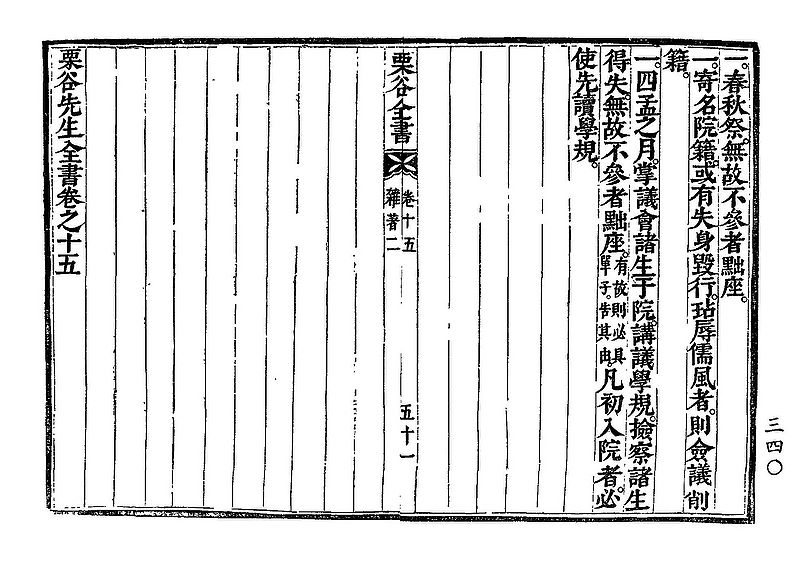 一。春秋祭。無故不參者黜座。
一。寄名院籍。或有失身毀行。玷辱儒風者。則僉議削
籍。
一。四孟之月。掌議會諸生于院。講議學規。撿察諸生
得失。無故不參者黜座。有故則必具單子。告其由。凡初入院者。必
使先讀學規。
栗谷全書 卷十五 雜著二 五十一
栗谷先生全書卷之十五
三四〇